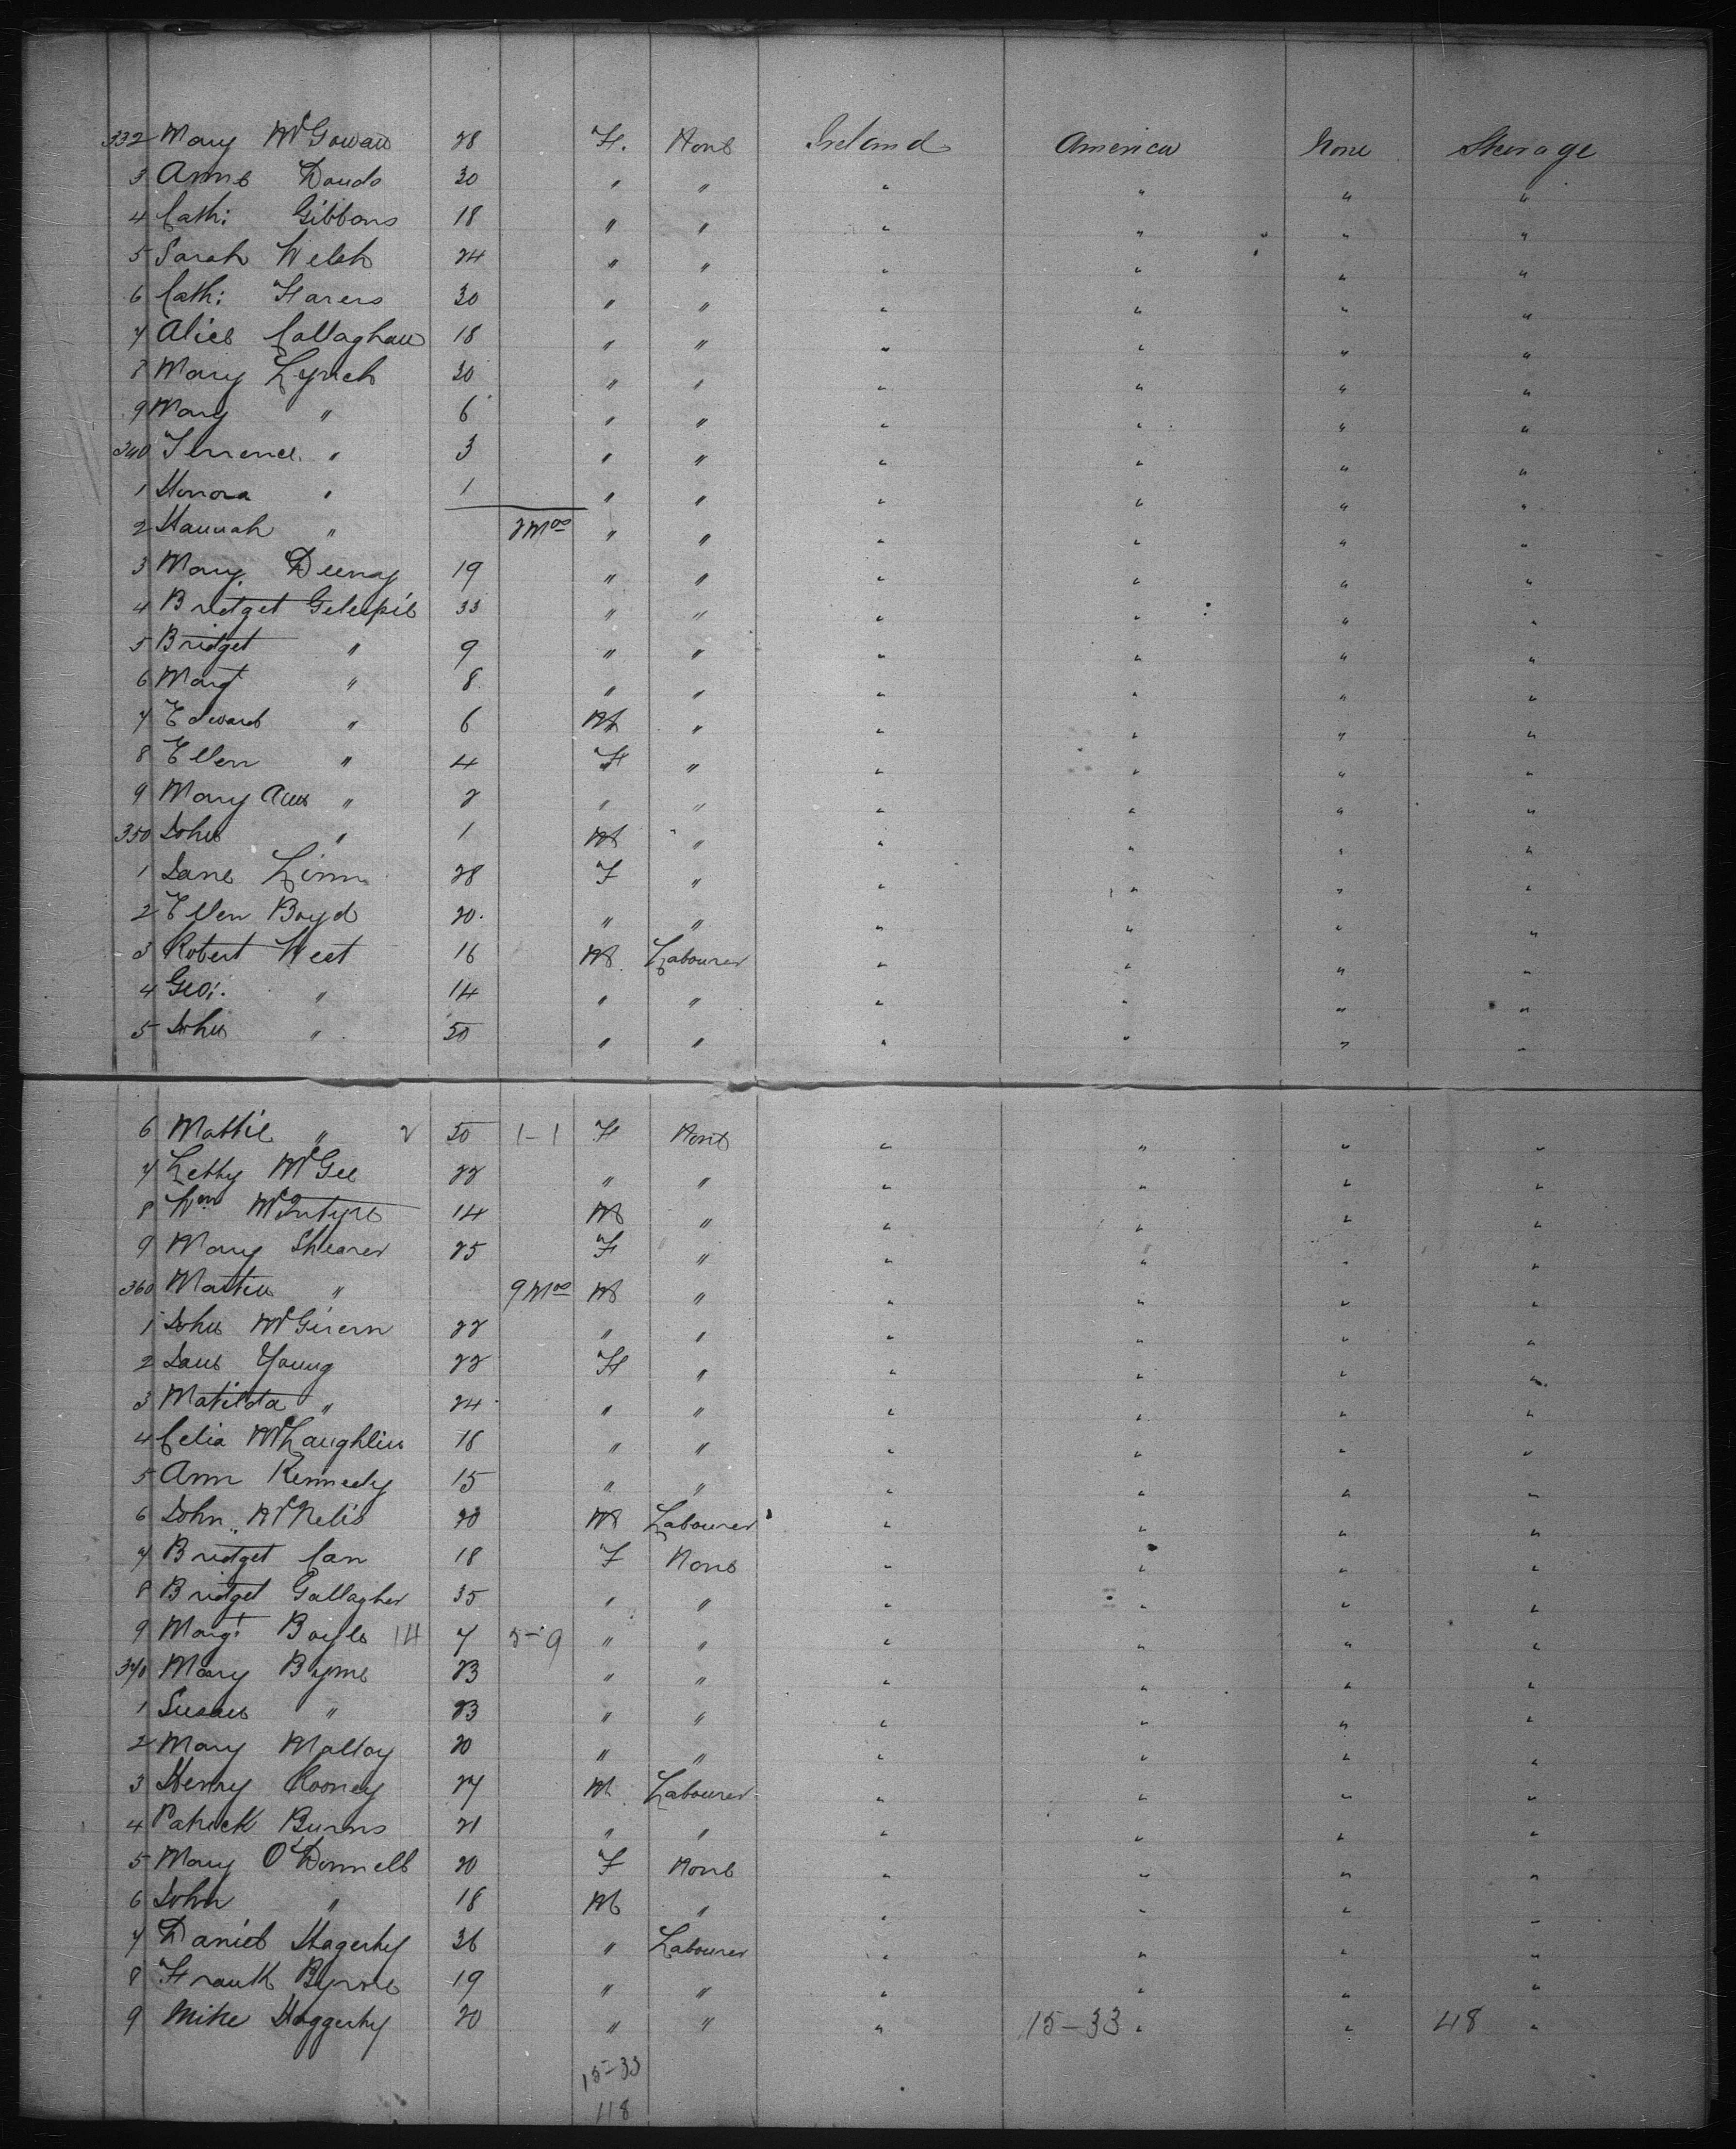 332 Mary McGowan 28 F. None Ireland America None Steerage
3 Anne Douds 30 " " " " " "
4 Cath: Gibbons 18 " " " " " "
5 Sarah Welsh 24 " " " " " "
6 Cath: 30 " " " " " "
7 Alice Callaghan 18 " " " " " "
8 Mary Lynch 30 " " " " " "
9 Mary " 6 " " " " " "
340 Terrence " 3 " " " " " "
1 Honora " 1 " " " " " "
2 Hannah " 2 Mos " " " " " "
3 Mary Deeney 19 " " " " " "
4 Bridget Gelespie 33 " " " " " "
5 Bridget " 9 " " " " " "
6 Margt " 8 " " " " " "
7 Edward " 6 M " " " " "
8 Ellen " 4 F " " " " "
9 Mary Ann " 2 " " " " " "
350 John " 1 M " " " " "
1 Jane Linn 28 F " " " " "
2 Ellen Boyd 20 " " " " " "
3 Robert West 16 M Labourer " " " "
4 Geo: " 14 " " " " " "
5 John " 50 " " " " " "
6 Mattie " 2 50 1-1 F None " " " "
7 Letty McGee 22 " " " " " "
8 Wm McIntyre 14 M " " " " "
9 Mary Shearer 25 F " " " " "
360 Martin " 9 Mos M " " " " "
1 John McGirern 22 " " " " " "
2 Jane Young 22 F " " " " "
3 Matilda " 24 " " " " " "
4 Celia McLaughlin 18 " " " " " "
5 Ann Kennedy 15 " " " " " "
6 John McNelis 20 M Labourer " " " "
7 Bridget Carr 18 F None " " " "
8 Bridget Gallagher 35 " " " " " "
9 Margt Boyle 14 7 5-9 " " " " " "
370 Mary Byrne 23 " " " " " "
1 Susan " 23 " " " " " "
2 Mary Malloy 20 " " " " " "
3 Henry Rooney 27 M Labourer " " " "
4 Patrick Burns 21 " " " " " "
5 Mary O'Donnell 20 F None " " " "
6 John " 18 M " " " " "
7 Daniel Hagerty 36 " Labourer " " " "
8 Frank Byrne 19 " " " " " "
9 Mike Haggerty 20 " " " 15-33 " " 48 "
15-33
118